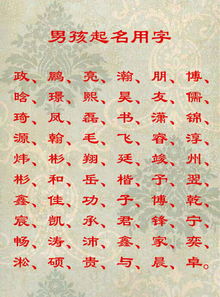 男孩起名用字
政、鹏、亮、瀚、朋、博、
晗、璟、熙、昊、友、儒、
琦、凤、磊、书、潇、锦、
源、翰、毛、飞、睿、淳、
炜、彬、翔、廷、竣、州、
彬、和、岳、楷、子、翌、
鑫、佳、功、子、博、乾、
宸、凯、承、君、锋、宁、
畅、涛、沛、鑫、家、奕、
淞、硕、贵、与、晨、卓。